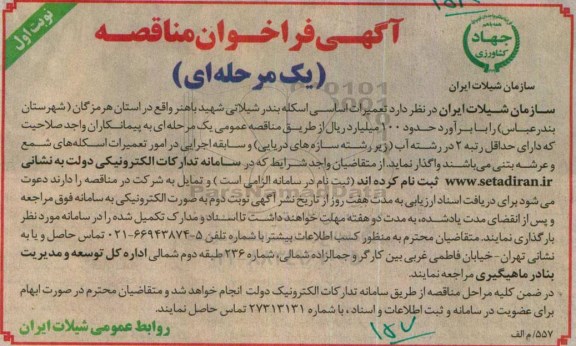 نوبت اول
جهاد
کشاورزی
سازمان شیلات ایران
آگهی فراخوان مناقصه
(یک مرحله‌ای)
سازمان شیلات ایران در نظر دارد تعمیرات اساسی اسکله بندر شیلاتی شهید باهنر واقع در استان هرمزگان (شهرستان
بندرعباس) را با برآورد حدود ۱۰۰ میلیارد ریال از طریق مناقصه عمومی یک مرحله‌ای به پیمانکاران واجد صلاحیت
که دارای حداقل رتبه ۲ در رشته آب (زیر رشته سازه های دریایی) و سابقه اجرایی در امور تعمیرات اسکله‌های شمع
و عرشه بتنی می‌باشند واگذار نماید. از متقاضیان واجد شرایط که در سامانه تدارکات الکترونیکی دولت به نشانی
www.setadiran.ir ثبت نام کرده اند (ثبت نام در سامانه الزامی است) و تمایل به شرکت در مناقصه را دارند دعوت
می شود برای دریافت اسناد ارزیابی به مدت هفت روز از تاریخ نشر آگهی نوبت دوم به صورت الکترونیکی به سامانه فوق مراجعه
و پس از انقضای مدت یادشده، به مدت دو هفته مهلت خواهند داشت تا اسناد و مدارک تکمیل شده را در سامانه مورد نظر
بارگذاری نمایند. متقاضیان محترم به منظور کسب اطلاعات بیشتر با شماره تلفن ۵-۶۶۹۴۳۸۷۴-۰۲۱ تماس حاصل و یا به
نشانی تهران- خیابان فاطمی غربی بین کارگر و جمالزاده شمالی، شماره ۲۳۶ طبقه دوم شمالی اداره کل توسعه و مدیریت
بنادر ماهیگیری مراجعه نمایند.
در ضمن کلیه مراحل مناقصه از طریق سامانه تدارکات الکترونیک دولت انجام خواهد شد و متقاضیان محترم در صورت ابهام
برای عضویت در سامانه و ثبت اطلاعات و اسناد، با شماره ۲۷۳۱۳۱۳۱ تماس حاصل نمایند.
۵۵۷/م الف
روابط عمومی شیلات ایران
۱۵۷